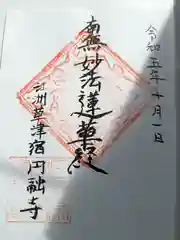 令和五年十月一日
南無妙法蓮華経
江州草津宿 円融寺